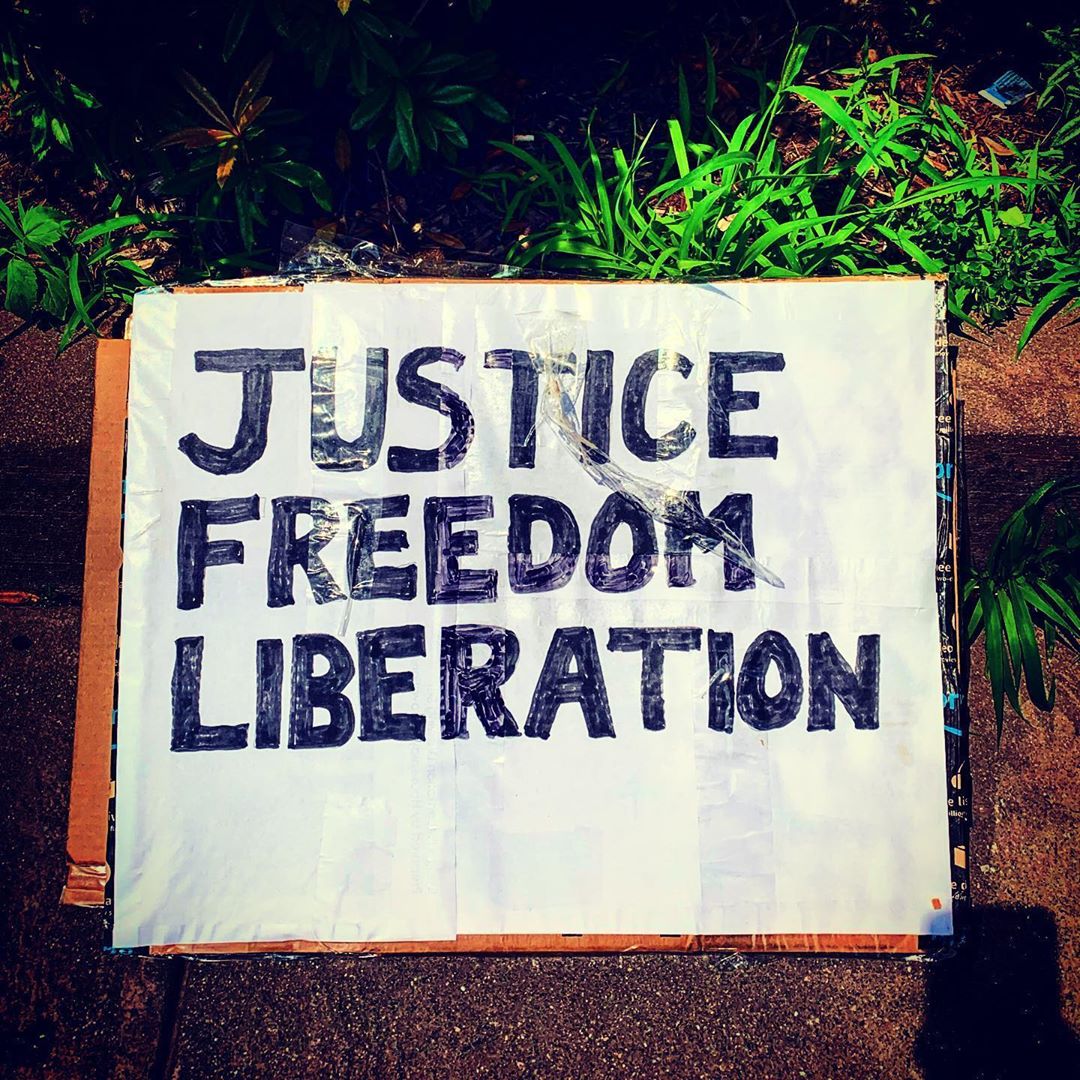 JUSTICE
FREEDOM
LIBERATION